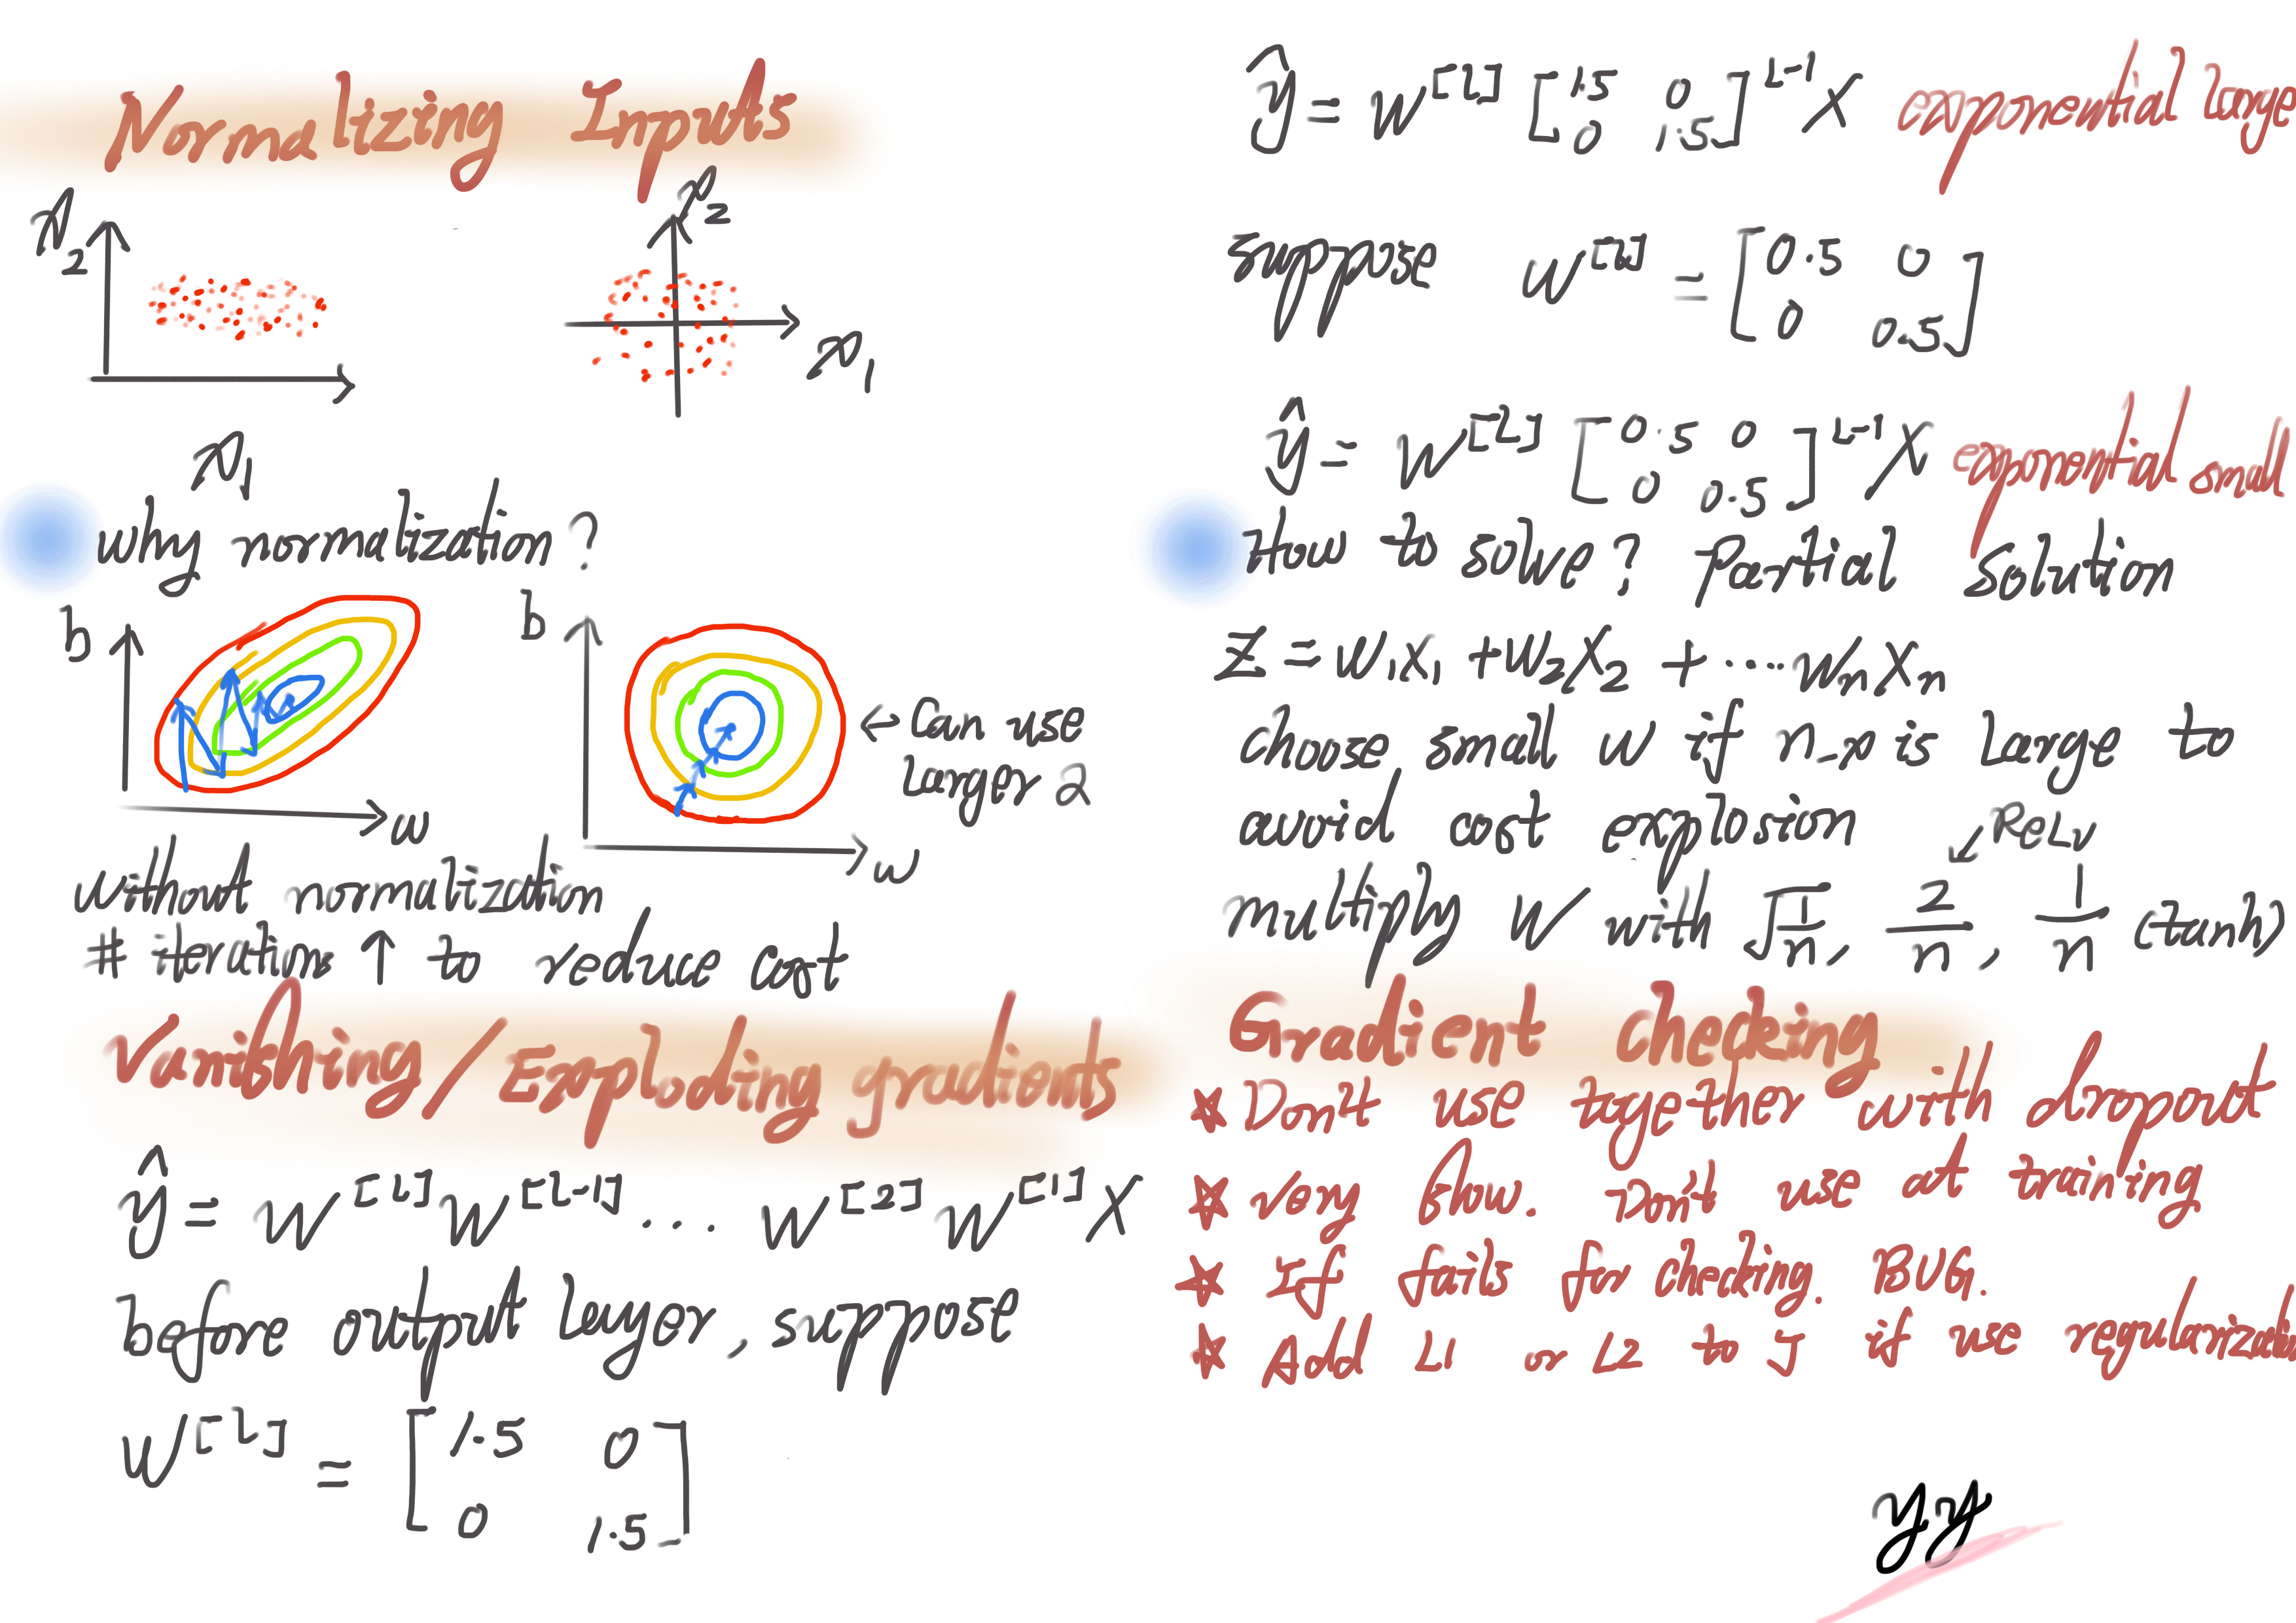 Normalizing Inputs
x2
x1
x2
x1
why normalization?
b
w
b
w
← Can use
larger α
without normalization
# iterations ↑ to reduce cost
Vanishing/Exploding gradients
ŷ = W^[L] W^[L-1] ... W^[2] W^[1] X
before output layer, suppose
W^[L] = [1.5 0
0 1.5]
ŷ = W^[L] [1.5 0
0 1.5]^L-1 X exponential large
suppose W^[L] = [0.5 0
0 0.5]
ŷ = W^[L] [0.5 0
0 0.5]^L-1 X exponential small
How to solve? Partial Solution
Z = w1x1 + w2x2 + ....wnxn
choose small w if n_x is large to
avoid cost explosion
↙ ReLU
multiply W with √1/n, 2/n, 1/n (tanh)
Gradient checking
☆ Don't use together with dropout
☆ Very slow. Don't use at training
☆ If fails for checking. BUG.
☆ Add L1 or L2 to J if use regularization
yy